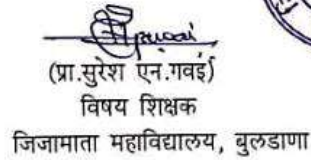 (प्रा.सुरेश एन.गवई)
विषय शिक्षक
जिजामाता महाविद्यालय, बुलडाणा